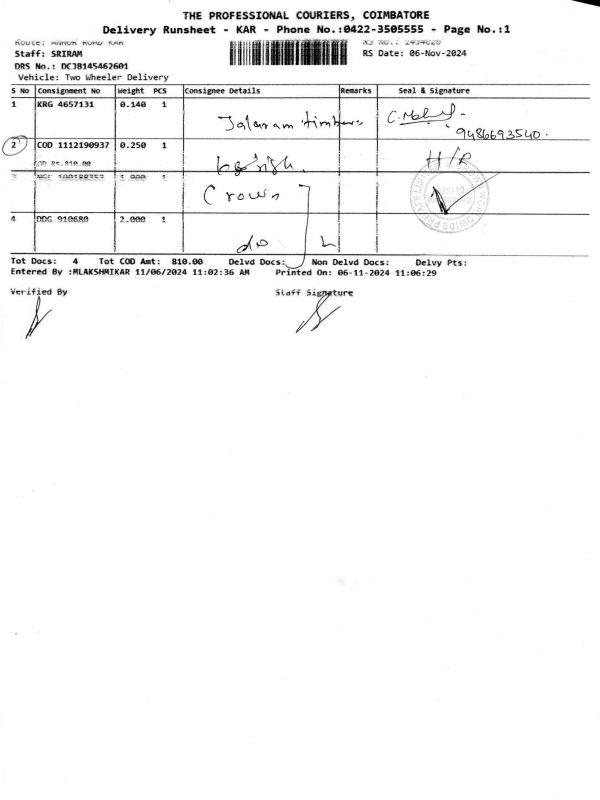 THE PROFESSIONAL COURIERS, COIMBATORE
Delivery Runsheet - KAR - Phone No.:0422-3505555 - Page No.:1
Staff: SRIRAM
RS Date: 06-Nov-2024
DRS No.: DCJB145462601
Vehicle: Two Wheeler Delivery
S No Consignment No Weight PCS Consignee Details Remarks Seal & Signature
1 KRG 4657131 0.140 1
Jalaram timbers
9486693540.
2 COD 1112190937 0.250 1
H/R
COD Rs.810.00
3 1.000 1 Crown
4 DDG 910680 2.000 1
do
Tot Docs: 4 Tot COD Amt: 810.00 Delvd Docs: Non Delvd Docs: Delvy Pts:
Entered By :MLAKSHMIKAR 11/06/2024 11:02:36 AM Printed On: 06-11-2024 11:06:29
Verified By Staff Signature